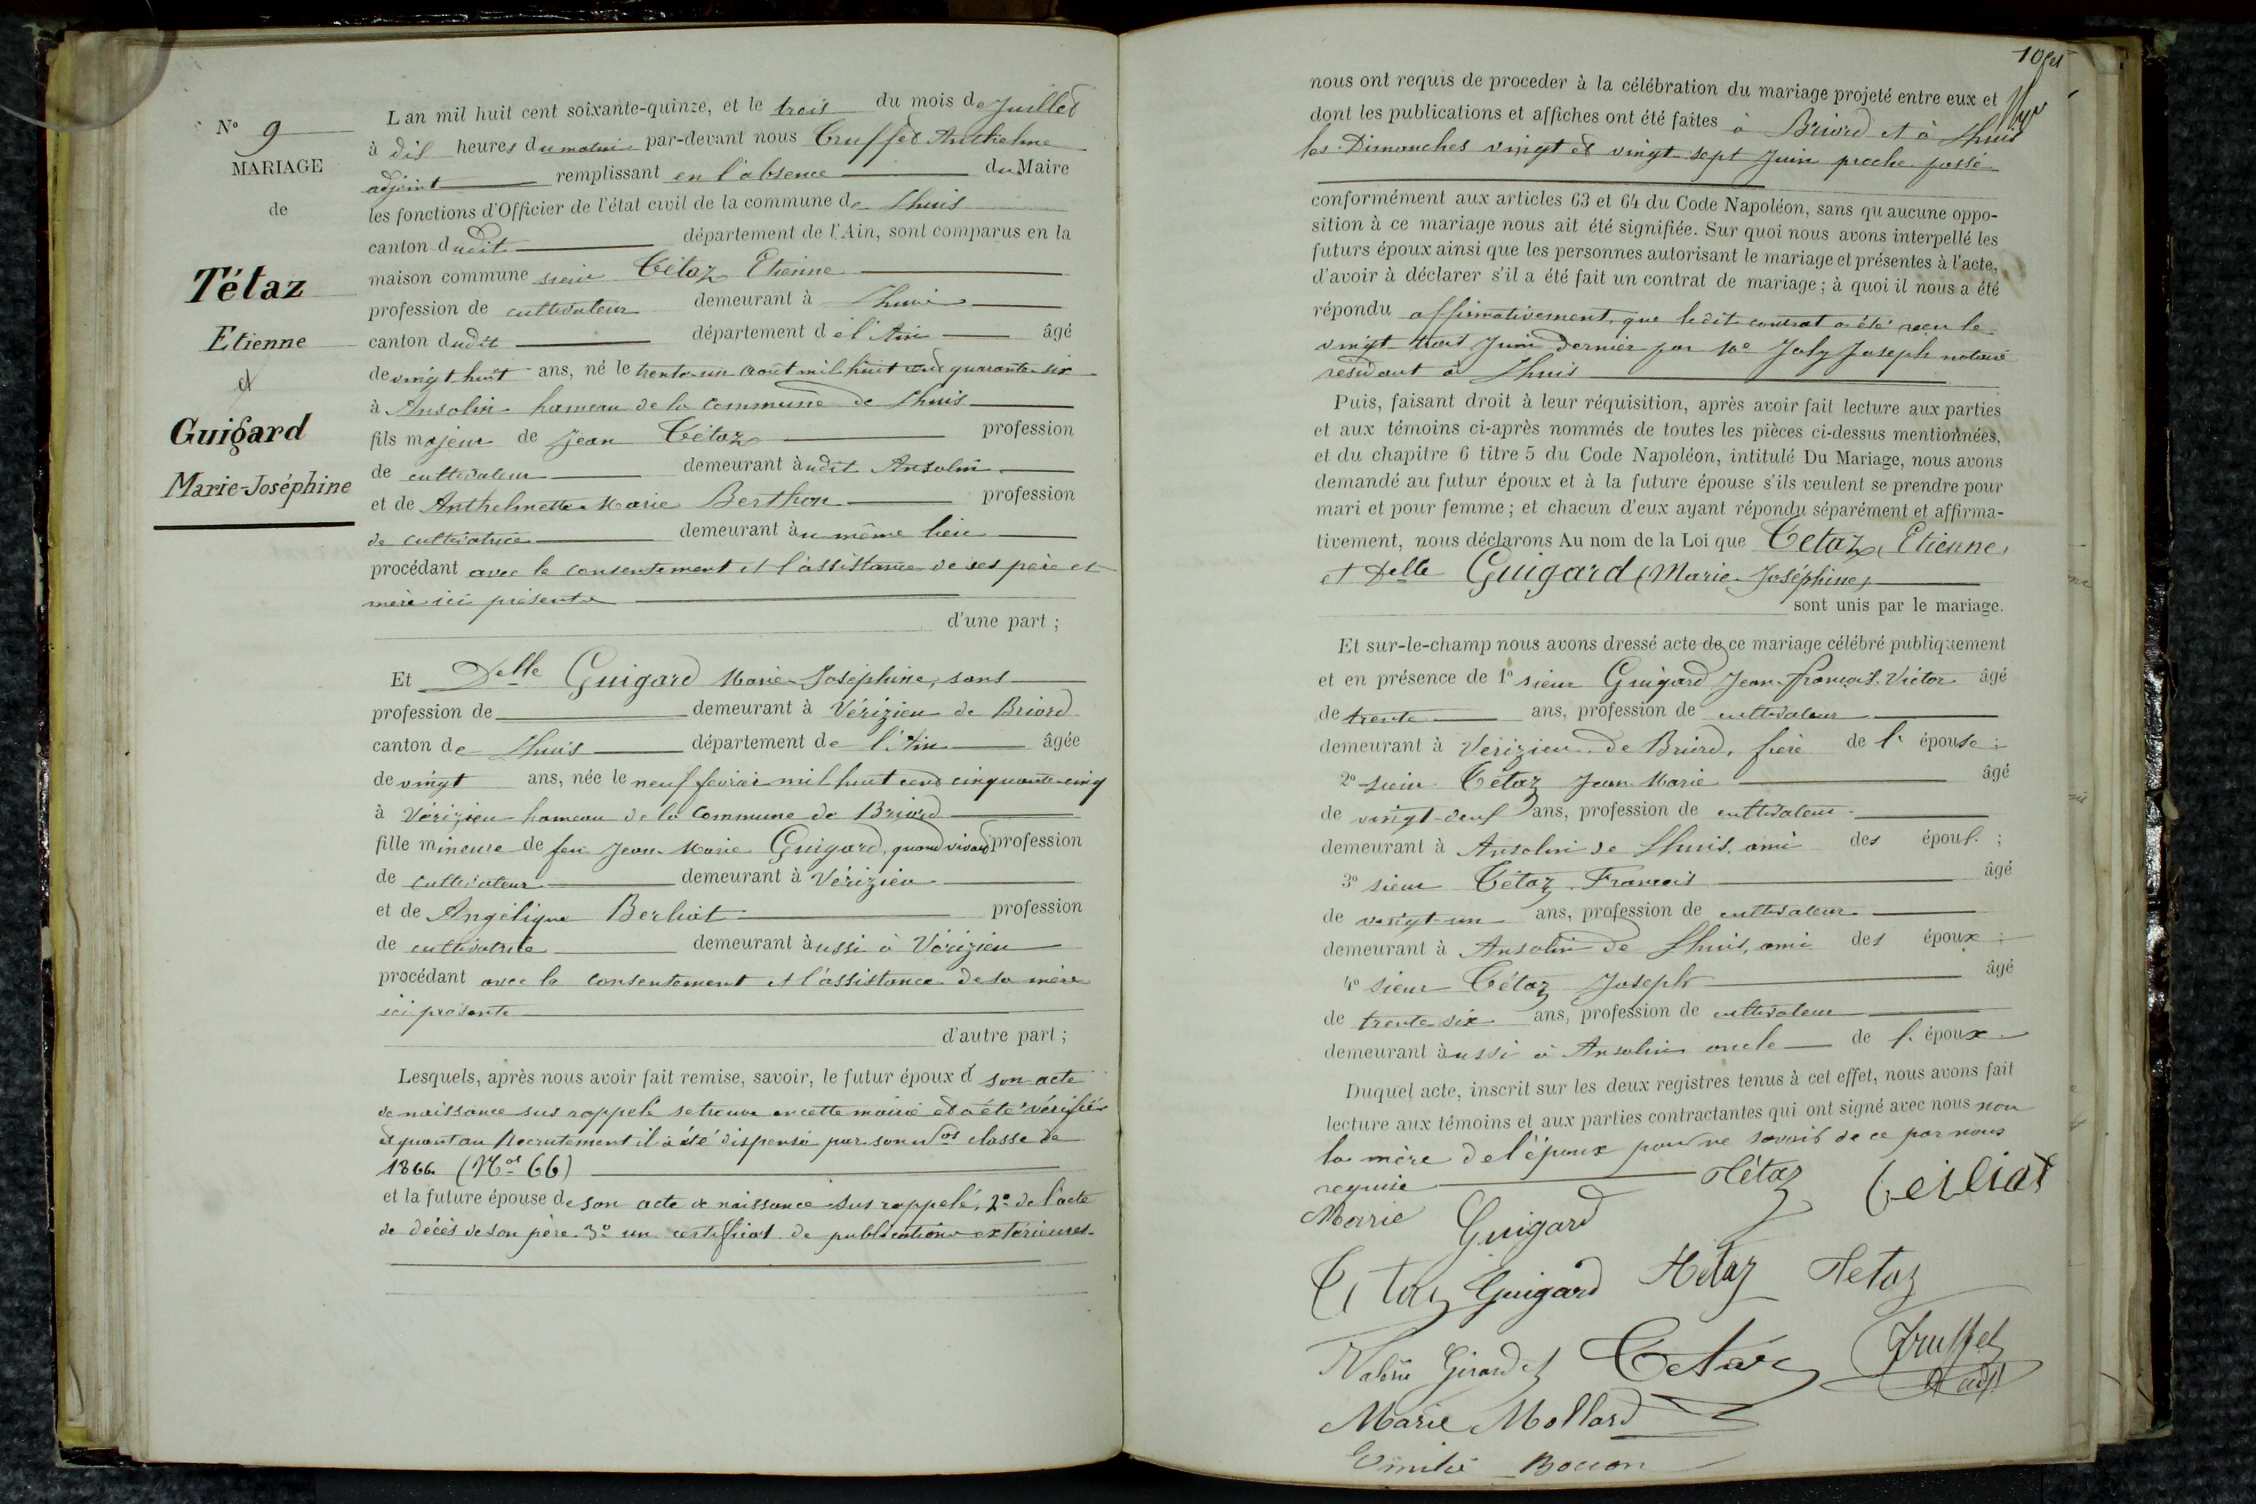 N° 9
MARIAGE
de
Tétaz
Etienne
et
Guigard
Marie-Joséphine
L'an mil huit cent soixante-quinze, et le trois du mois de Juillet
à dix heures du matin par-devant nous Truffet Anthelme
adjoint remplissant en l'absence du Maire
les fonctions d'Officier de l'état civil de la commune de Lhuis
canton dudit département de l'Ain, sont comparus en la
maison commune sieur Tétaz Etienne
profession de cultivateur demeurant à Lhuis
canton dudit département de l'Ain âgé
de vingt huit ans, né le trente-un août mil huit cent quarante-six
à Ansolin hameau de la commune de Lhuis
fils majeur de Jean Tétaz profession
de cultivateur demeurant àudit Ansolin
et de Anthelmette Marie Berthon profession
de cultivatrice demeurant àu même lieu
procédant avec le consentement et l'assistance de ses père et
mère ici présents
d'une part ;
Et Delle Guigard Marie-Joséphine, sans
profession de demeurant à Vérizieu de Briord
canton de Lhuis département de l'Ain âgée
de vingt ans, née le neuf février mil huit cent cinquante-cinq
à Vérizieu hameau de la commune de Briord
fille mineure de feu Jean-Marie Guigard, quand vivait profession
de cultivateur demeurant à Vérizieu
et de Angélique Berliat profession
de cultivatrice demeurant àussi à Vérizieu
procédant avec le consentement et l'assistance de sa mère
ici présente
d'autre part ;
Lesquels, après nous avoir fait remise, savoir, le futur époux d son acte
de naissance sus rappelé se trouve en cette mairie et a été vérifié
et quant au Recrutement il a été dispensé par son nos classe de
1866 (Nos 66)
et la future épouse de son acte de naissance sus rappelé, 2° de l'acte
de décès de son père 3° un certificat de publications extérieures.
nous ont requis de proceder à la célébration du mariage projeté entre eux et
dont les publications et affiches ont été faites à Briord et à Lhuis
les Dimanches vingt et vingt-sept Juin proche passé
conformément aux articles 63 et 64 du Code Napoléon, sans qu'aucune oppo-
sition à ce mariage nous ait été signifiée. Sur quoi nous avons interpellé les
futurs époux ainsi que les personnes autorisant le mariage et présentes à l'acte,
d'avoir à déclarer s'il a été fait un contrat de mariage ; à quoi il nous a été
répondu affirmativement, que ledit contrat a été reçu le
vingt-trois Juin dernier par Me Joly Joseph notaire
résidant à Lhuis
Puis, faisant droit à leur réquisition, après avoir fait lecture aux parties
et aux témoins ci-après nommés de toutes les pièces ci-dessus mentionnées,
et du chapitre 6 titre 5 du Code Napoléon, intitulé Du Mariage, nous avons
demandé au futur époux et à la future épouse s'ils veulent se prendre pour
mari et pour femme ; et chacun d'eux ayant répondu séparément et affirma-
tivement, nous déclarons Au nom de la Loi que Tetaz, Etienne,
et Delle Guigard (Marie-Joséphine)
sont unis par le mariage.
Et sur-le-champ nous avons dressé acte de ce mariage célébré publiquement
et en présence de 1° sieur Guigard Jean-françois-Victor âgé
de trente ans, profession de cultivateur
demeurant à Vérizieu de Briord, frère de l' épouse ;
2° sieur Tétaz Jean-Marie âgé
de vingt-deux ans, profession de cultivateur
demeurant à Ansolin de Lhuis, ami des époux ;
3° sieur Tétaz François âgé
de vingt-un ans, profession de cultivateur
demeurant à Ansolin de Lhuis, ami des époux ;
4° sieur Tétaz Joseph âgé
de trente-six ans, profession de cultivateur
demeurant àussi à Ansolin oncle de l' époux
Duquel acte, inscrit sur les deux registres tenus à cet effet, nous avons fait
lecture aux témoins et aux parties contractantes qui ont signé avec nous non
la mère de l'époux pour ne savoir de ce par nous
requise Tétaz Berliat
Marie Guigard
Tétaz Guigard Tétaz Tetaz
Valérie Girardet Tetaz Truffet
Marie Mollard
Emilie Bocon